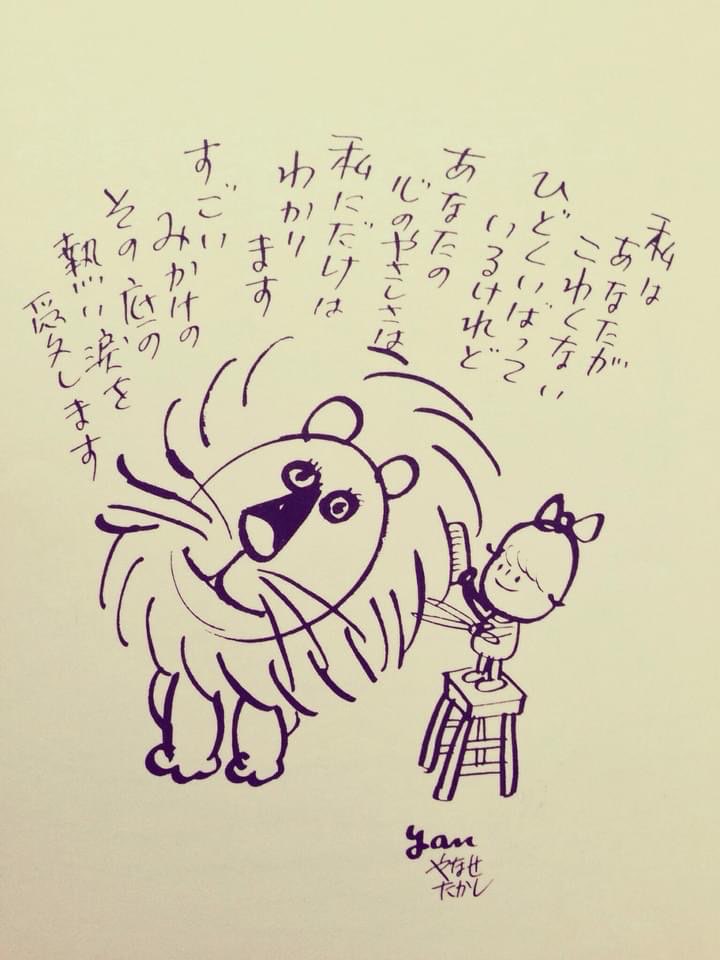 私は
あなたが
こわくない
ひどくいばって
いるけれど
あなたの
心のやさしさは
私にだけは
わかり
ます
すごい
みかけの
その底の
熱い涙を
愛します
yan
やなせ
たかし